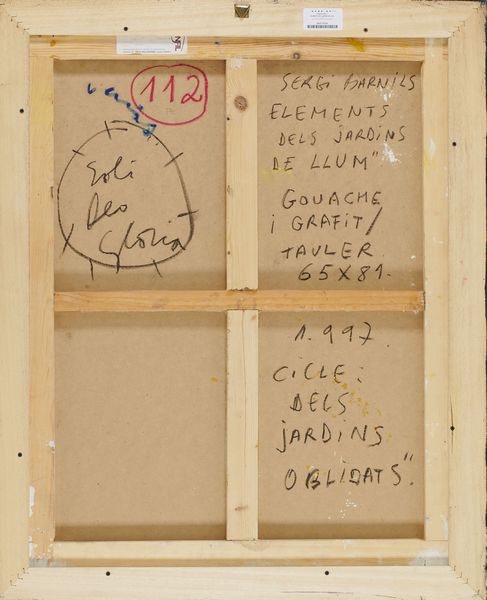 112
Soli
Deo
Gloria
SERGI BARNILS
ELEMENTS
DELS JARDINS
DE LLUM"
GOUACHE
i GRAFIT/
TAULER
65X81.
1.997
CICLE:
DELS
JARDINS
OBLIDATS".